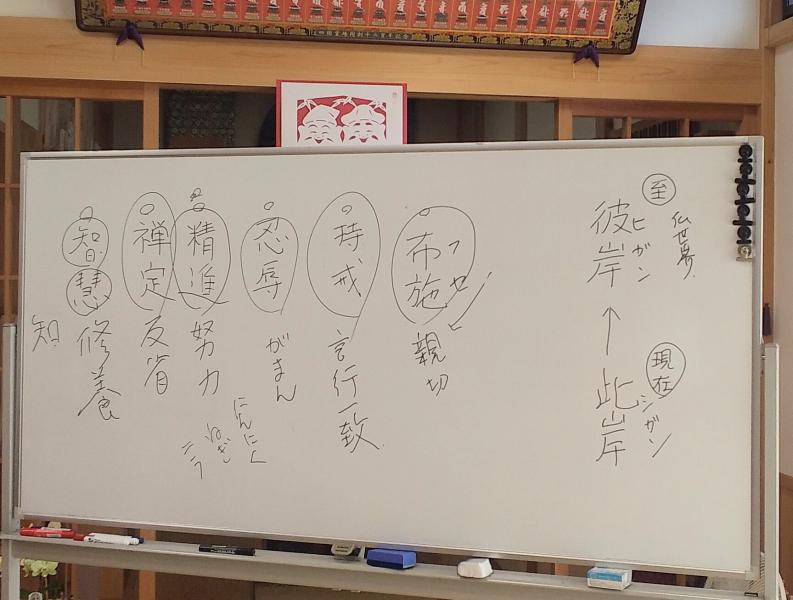 至
彼岸
ヒガン
仏世界
↑
現在
此岸
シガン
布施
フセ
親切
持戒
言行一致
忍辱
がまん
にんにく
ねぎ
ニラ
精進
努力
禅定
反省
智慧
修養
知